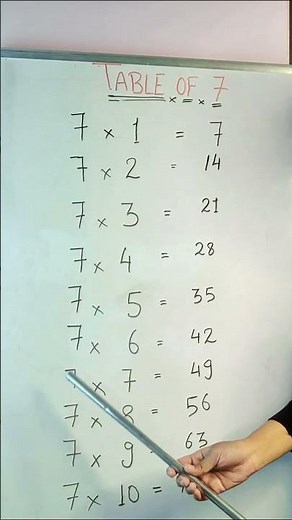 TABLE OF 7
7 x 1 = 7
7 x 2 = 14
7 x 3 = 21
7 x 4 = 28
7 x 5 = 35
7 x 6 = 42
7 x 7 = 49
7 x 8 = 56
7 x 9 = 63
7 x 10 =